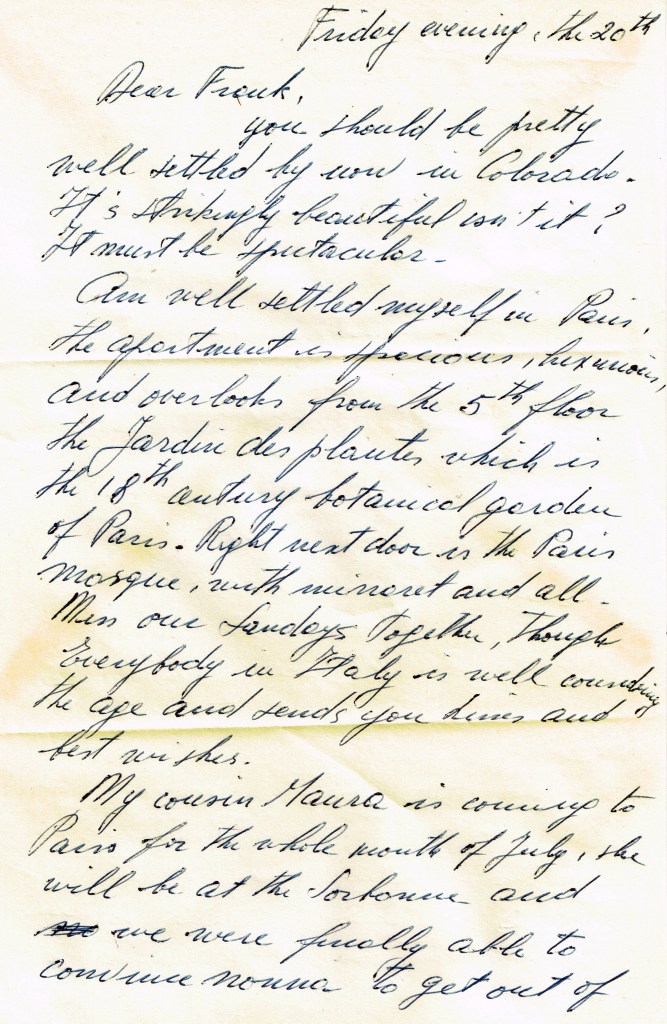 Friday evening, the 20th
Dear Frank,
you should be pretty
well settled by now in Colorado.
It's strikingly beautiful isn't it?
It must be spectacular.
Am well settled myself in Paris,
the apartment is spacious, luxurious,
and overlooks from the 5th floor
the Jardin des plantes which is
the 18th century botanical garden
of Paris. Right next door is the Paris
mosque, with minaret and all.
Miss our Sundays together, though
Everybody in Italy is well considering
the age and sends you kisses and
best wishes.
My cousin Maura is coming to
Paris for the whole month of July, she
will be at the Sorbonne and
we were finally able to
convince nonna to get out of